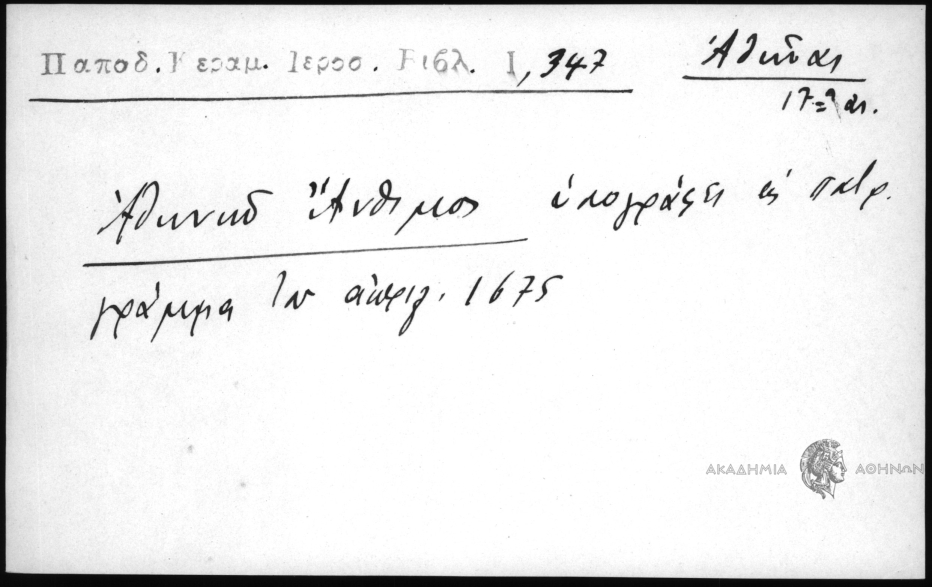 Παπαδ. Κεραμ. Ιεροσ. Βιβλ. Ι, 347
Ἀθῆναι
17ος αι.
Ἀθηνῶν Ἄνθιμος ὑπογράφει εἰς πατρ.
γράμμα του ἀπριλ. 1675
ΑΚΑΔΗΜΙΑ ΑΘΗΝΩΝ